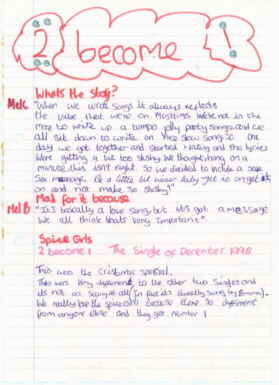 2 become 1
Whats the story?
Mel C "When we write songs it always reflects
the vibe that we're on. Most times we're not in the
mood to write up a tempo jolly party songs and we
all sit down to write on nice slow song. So one
day we got together and started writing and the lyrics
were getting a bit too slushy. We thought, hang on a
minute this isn't right. So we decided to include a safe
sex message, be a little bit wiser baby on
on and not make so slushy!"
Mad for it because
Mel B "It's basically a love song, but it's got a message
We all think that's very important."
Spice Girls
2 become 1 The Single of December 1996
This was the Cristmas special.
This was Very diferent to the other two singles and
its not as scary at all (In fact its
We really love the spice because there so diferent
from anyone else and they got number 1